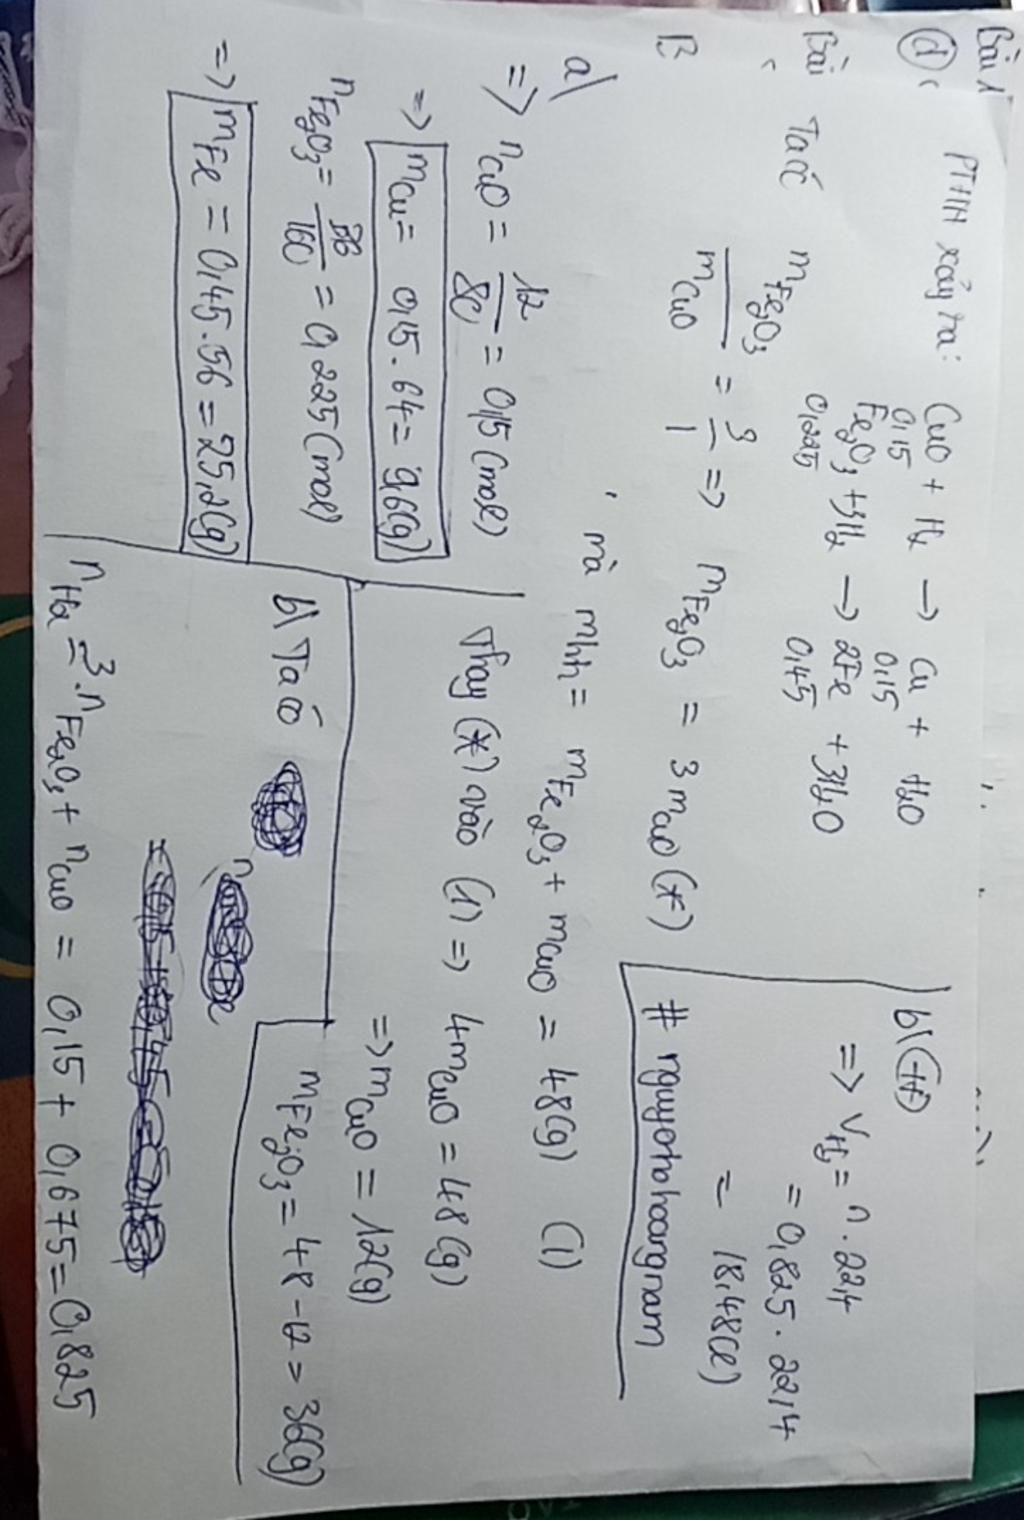 Bài 1
d
PTHH xảy ra: CuO + H2 → Cu + H2O
0,15 0,15
Fe2O3 + 3H2 → 2Fe + 3H2O
0,225 0,45
Bài Ta có mFe2O3 / mCuO = 3/1 => mFe2O3 = 3mCuO (*)
B
mà mhh = mFe2O3 + mCuO = 48(g) (1)
Thay (*) vào (1) => 4mCuO = 48(g)
=> mCuO = 12(g)
mFe2O3 = 48 - 12 = 36(g)
a)
=> nCuO = 12/80 = 0,15 (mol)
=> mCu = 0,15 . 64 = 9,6(g)
nFe2O3 = 36/160 = 0,225 (mol)
=> mFe = 0,45 . 56 = 25,2(g)
b) Ta có
nH2 = 3.nFe2O3 + nCuO = 0,15 + 0,675 = 0,825
b) (tt)
=> VH2 = n . 22,4
= 0,825 . 22,4
= 18,48(l)
# nguyenhohoangnam